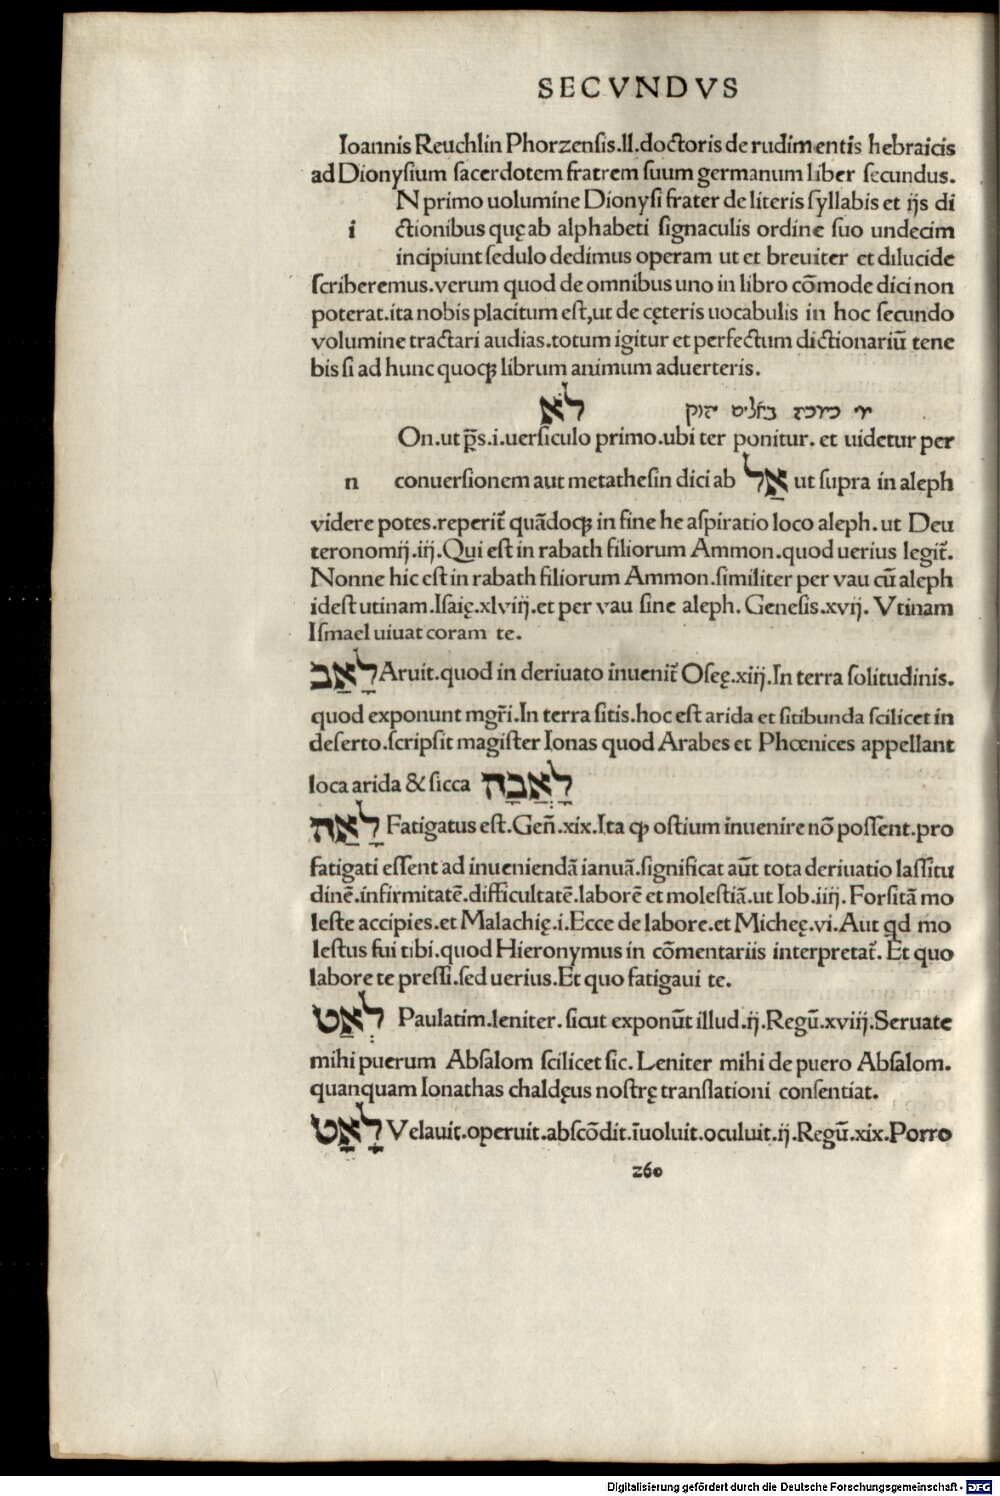 SECVNDVS
Ioannis Reuchlin Phorzensis.ll.doctoris de rudimentis hebraicis
ad Dionysium sacerdotem fratrem suum germanum liber secundus.
N primo uolumine Dionysi frater de literis syllabis et ijs di
i ctionibus quę ab alphabeti signaculis ordine suo undecim
incipiunt sedulo dedimus operam ut et breuiter et dilucide
scriberemus.verum quod de omnibus uno in libro cõmode dici non
poterat.ita nobis placitum est,ut de cęteris uocabulis in hoc secundo
volumine tractari audias.totum igitur et perfectum dictionariũ tene
bis si ad hunc quoqꝫ librum animum aduerteris.
לֹא
On.ut p̃s.i.uersiculo primo.ubi ter ponitur. et uidetur per
n conuersionem aut metathesin dici ab אַל ut supra in aleph
videre potes.reperit᷑ quãdoqꝫ in fine he aspiratio loco aleph.ut Deu
teronomij.iij.Qui est in rabath filiorum Ammon.quod uerius legit᷑.
Nonne hic est in rabath filiorum Ammon.similiter per vau cũ aleph
idest utinam.Isaię.xlviij.et per vau sine aleph. Genesis.xvij. Vtinam
Ismael uiuat coram te.
לָאַב Aruit.quod in deriuato inuenit᷑ Oseę.xiij.In terra solitudinis.
quod exponunt mgr̃i.In terra sitis.hoc est arida et sitibunda scilicet in
deserto.scripsit magister Ionas quod Arabes et Phœnices appellant
loca arida & sicca לָאֲבָה
לָאַה Fatigatus est.Geñ.xix.Ita ꝙ ostium inuenire nõ possent.pro
fatigati essent ad inueniendã ianuã.significat aũt tota deriuatio lassitu
dinẽ.infirmitatẽ.difficultatẽ.laborẽ et molestiã.ut Iob.iiij. Forsitã mo
leste accipies.et Malachię.i.Ecce de labore.et Micheę.vi.Aut qd mo
lestus fui tibi.quod Hieronymus in cõmentariis interpretat᷑. Et quo
labore te pressi.sed uerius.Et quo fatigaui te.
לְאַט Paulatim.leniter. sicut exponũt illud.ij.Regũ.xviij.Seruate
mihi puerum Absalom scilicet sic. Leniter mihi de puero Absalom.
quanquam Ionathas chaldęus nostrę translationi consentiat.
לָאַט Velauit.operuit.abscõdit.ĩuoluit.oculuit.ij.Regũ.xix.Porro
260
Digitalisierung gefördert durch die Deutsche Forschungsgemeinschaft - DFG